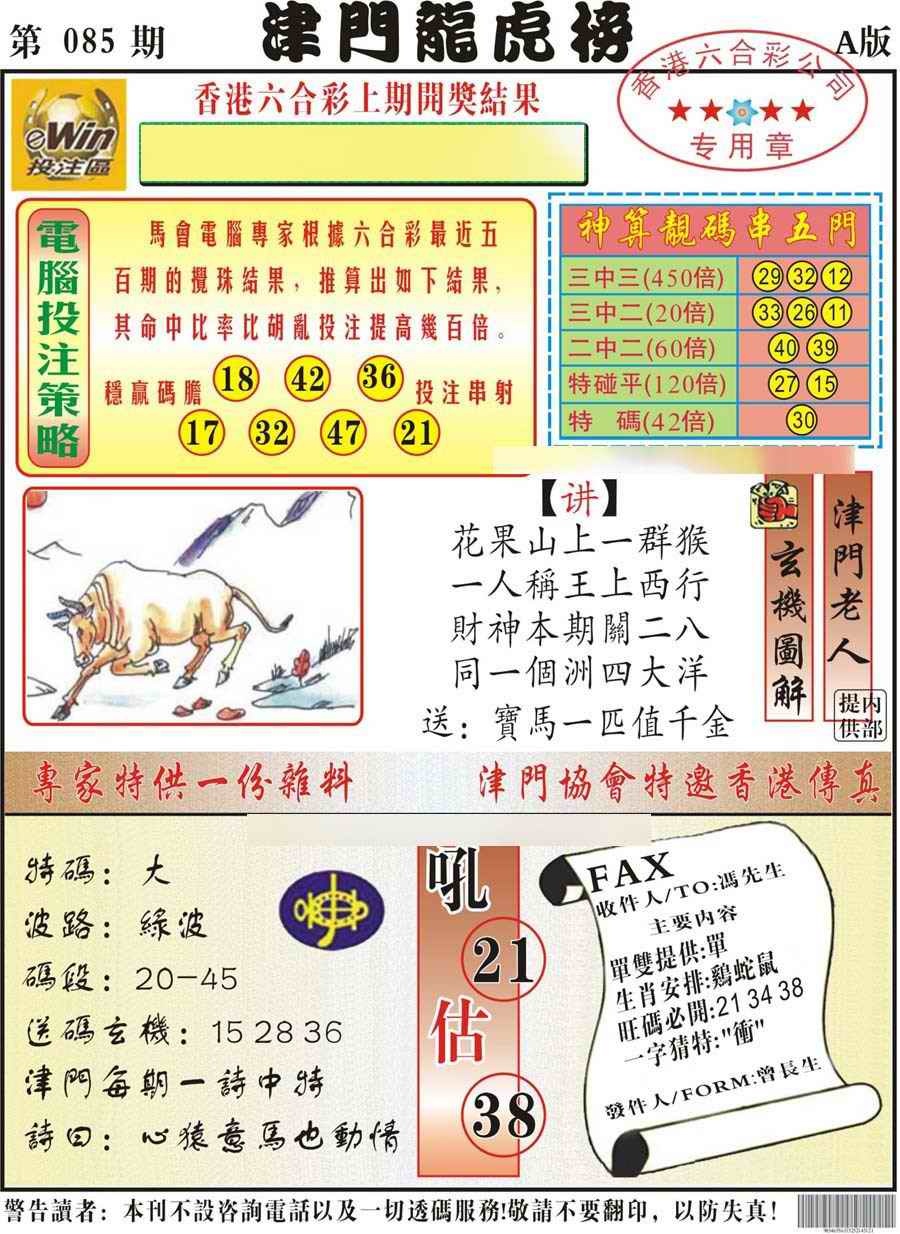 第 085 期
津門龍虎榜
A版
eWin
投注區
香港六合彩上期開獎結果
香港六合彩公司
专用章
電腦投注策略
馬會電腦專家根據六合彩最近五
百期的攪珠結果，推算出如下結果，
其命中比率比胡亂投注提高幾百倍。
穩贏碼膽 18 42 36 投注串射
17 32 47 21
神算靚碼串五門
三中三(450倍) 29 32 12
三中二(20倍) 33 26 11
二中二(60倍) 40 39
特碰平(120倍) 27 15
特 碼(42倍) 30
【讲】
花果山上一群猴
一人稱王上西行
財神本期關二八
同一個洲四大洋
送：寶馬一匹值千金
玄機圖解
津門老人
内部提供
專家特供一份雜料
津門協會特邀香港傳真
特碼：大
波路：綠波
碼段：20-45
送碼玄機：15 28 36
津門每期一詩中特
詩曰：心猿意馬也動情
吼
21
估
38
FAX
收件人/TO:馮先生
主要内容
單雙提供:單
生肖安排:鷄蛇鼠
旺碼必開:21 34 38
一字猜特:"衝"
發件人/FORM:曾長生
警告讀者：本刊不設咨詢電話以及一切透碼服務!敬請不要翻印，以防失真!